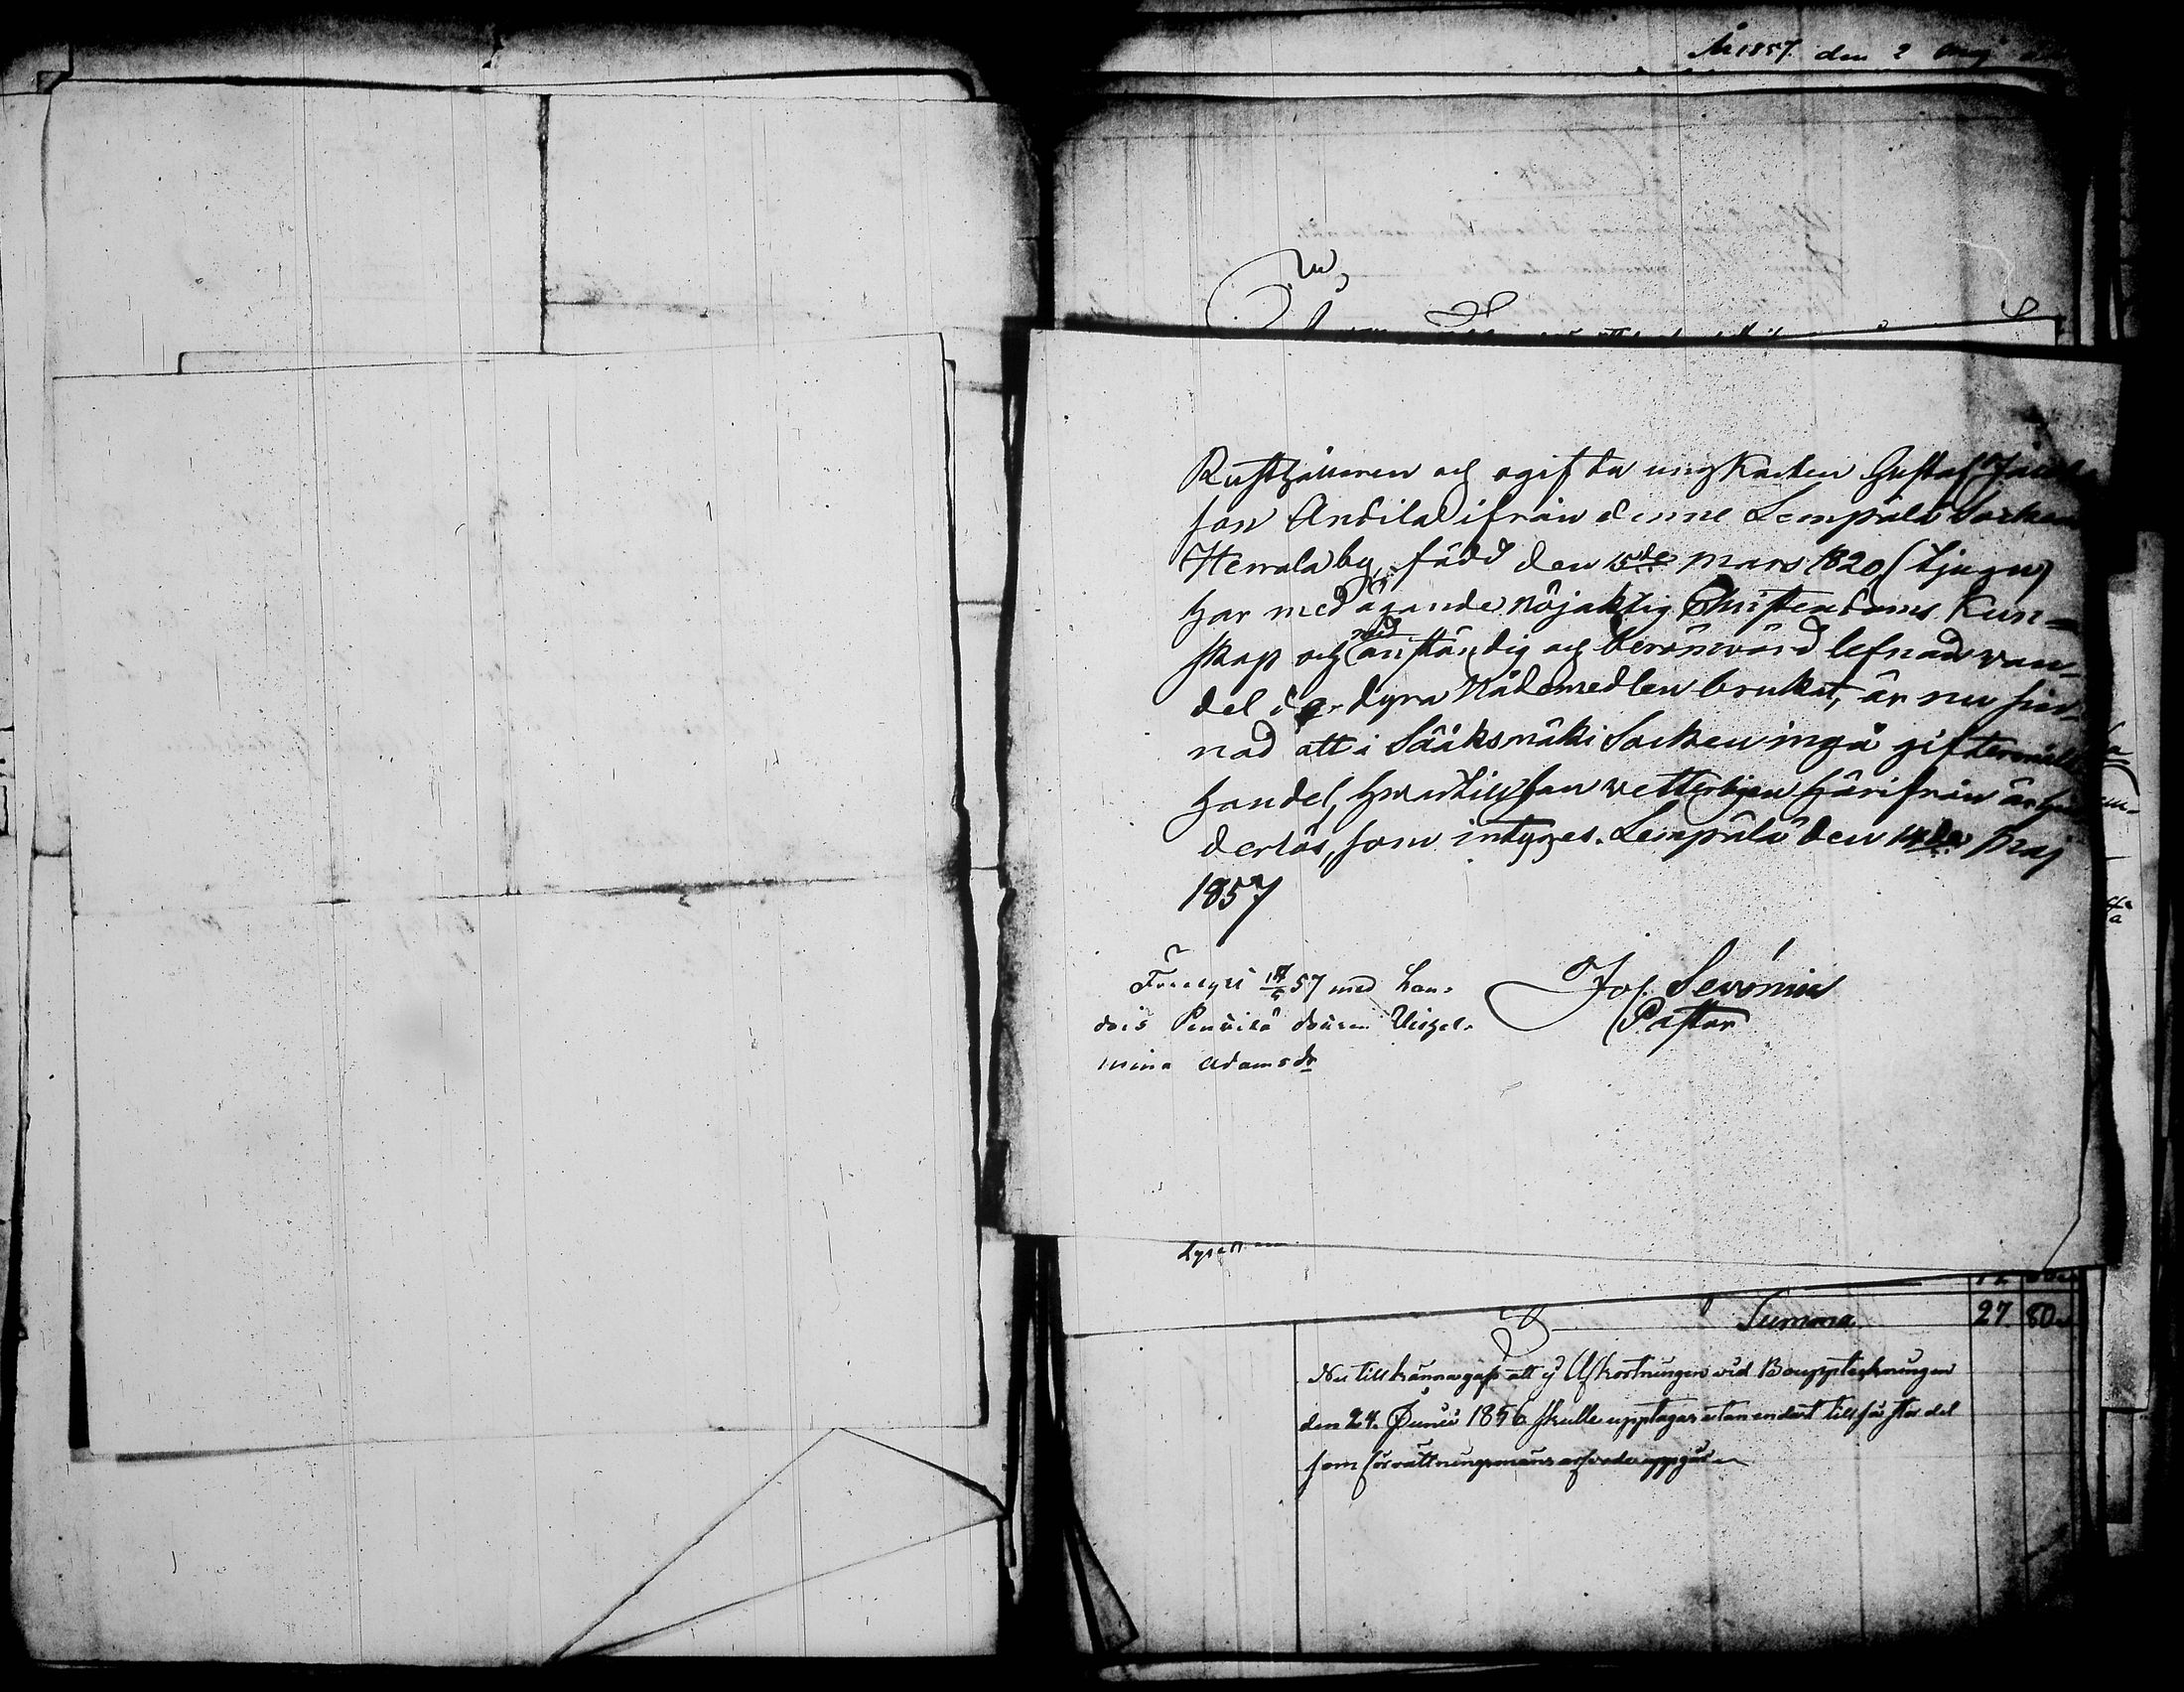 År 1857. den 2 Maj
Rusthållaren och ogifta ungkarlen Gustaf Jacobs
son Andila ifrån denne Lempälä Socken
Herrala by, född den 15de Mars 1820 (tjugu)
har med ägande nöjaktig Christendoms Kun-
skap och med anständig och berömvärd lefnadsvan-
del de dyra Nådemedlen brukat, är nu sin-
nad att i Sääksmäki Socken ingå giftermåls
handel, hvartill han vetterligen härifrån är hin
derlös, som intyges. Lempälä den 14de Maj
1857
Jos. Servonius
Pastor
57 med
dois Pentilä Vilhel-
mina Adamsdr
Lyses
Summa 27 80
Nu tillkännagafs att i Afkortningen vid Bouppteckningen
den 24. Junii 1856 skulle upptagas utan endast tillfåstås del
som förrättningsmäns arfvode uppgår